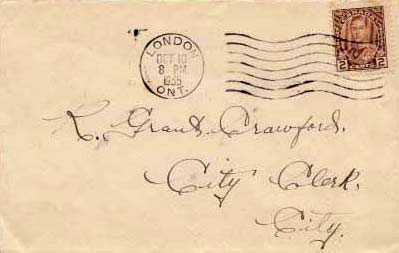 LONDON
OCT 10
8 PM
1935
ONT.
2 2
K. Grant Crawford.
City Clerk.
City.